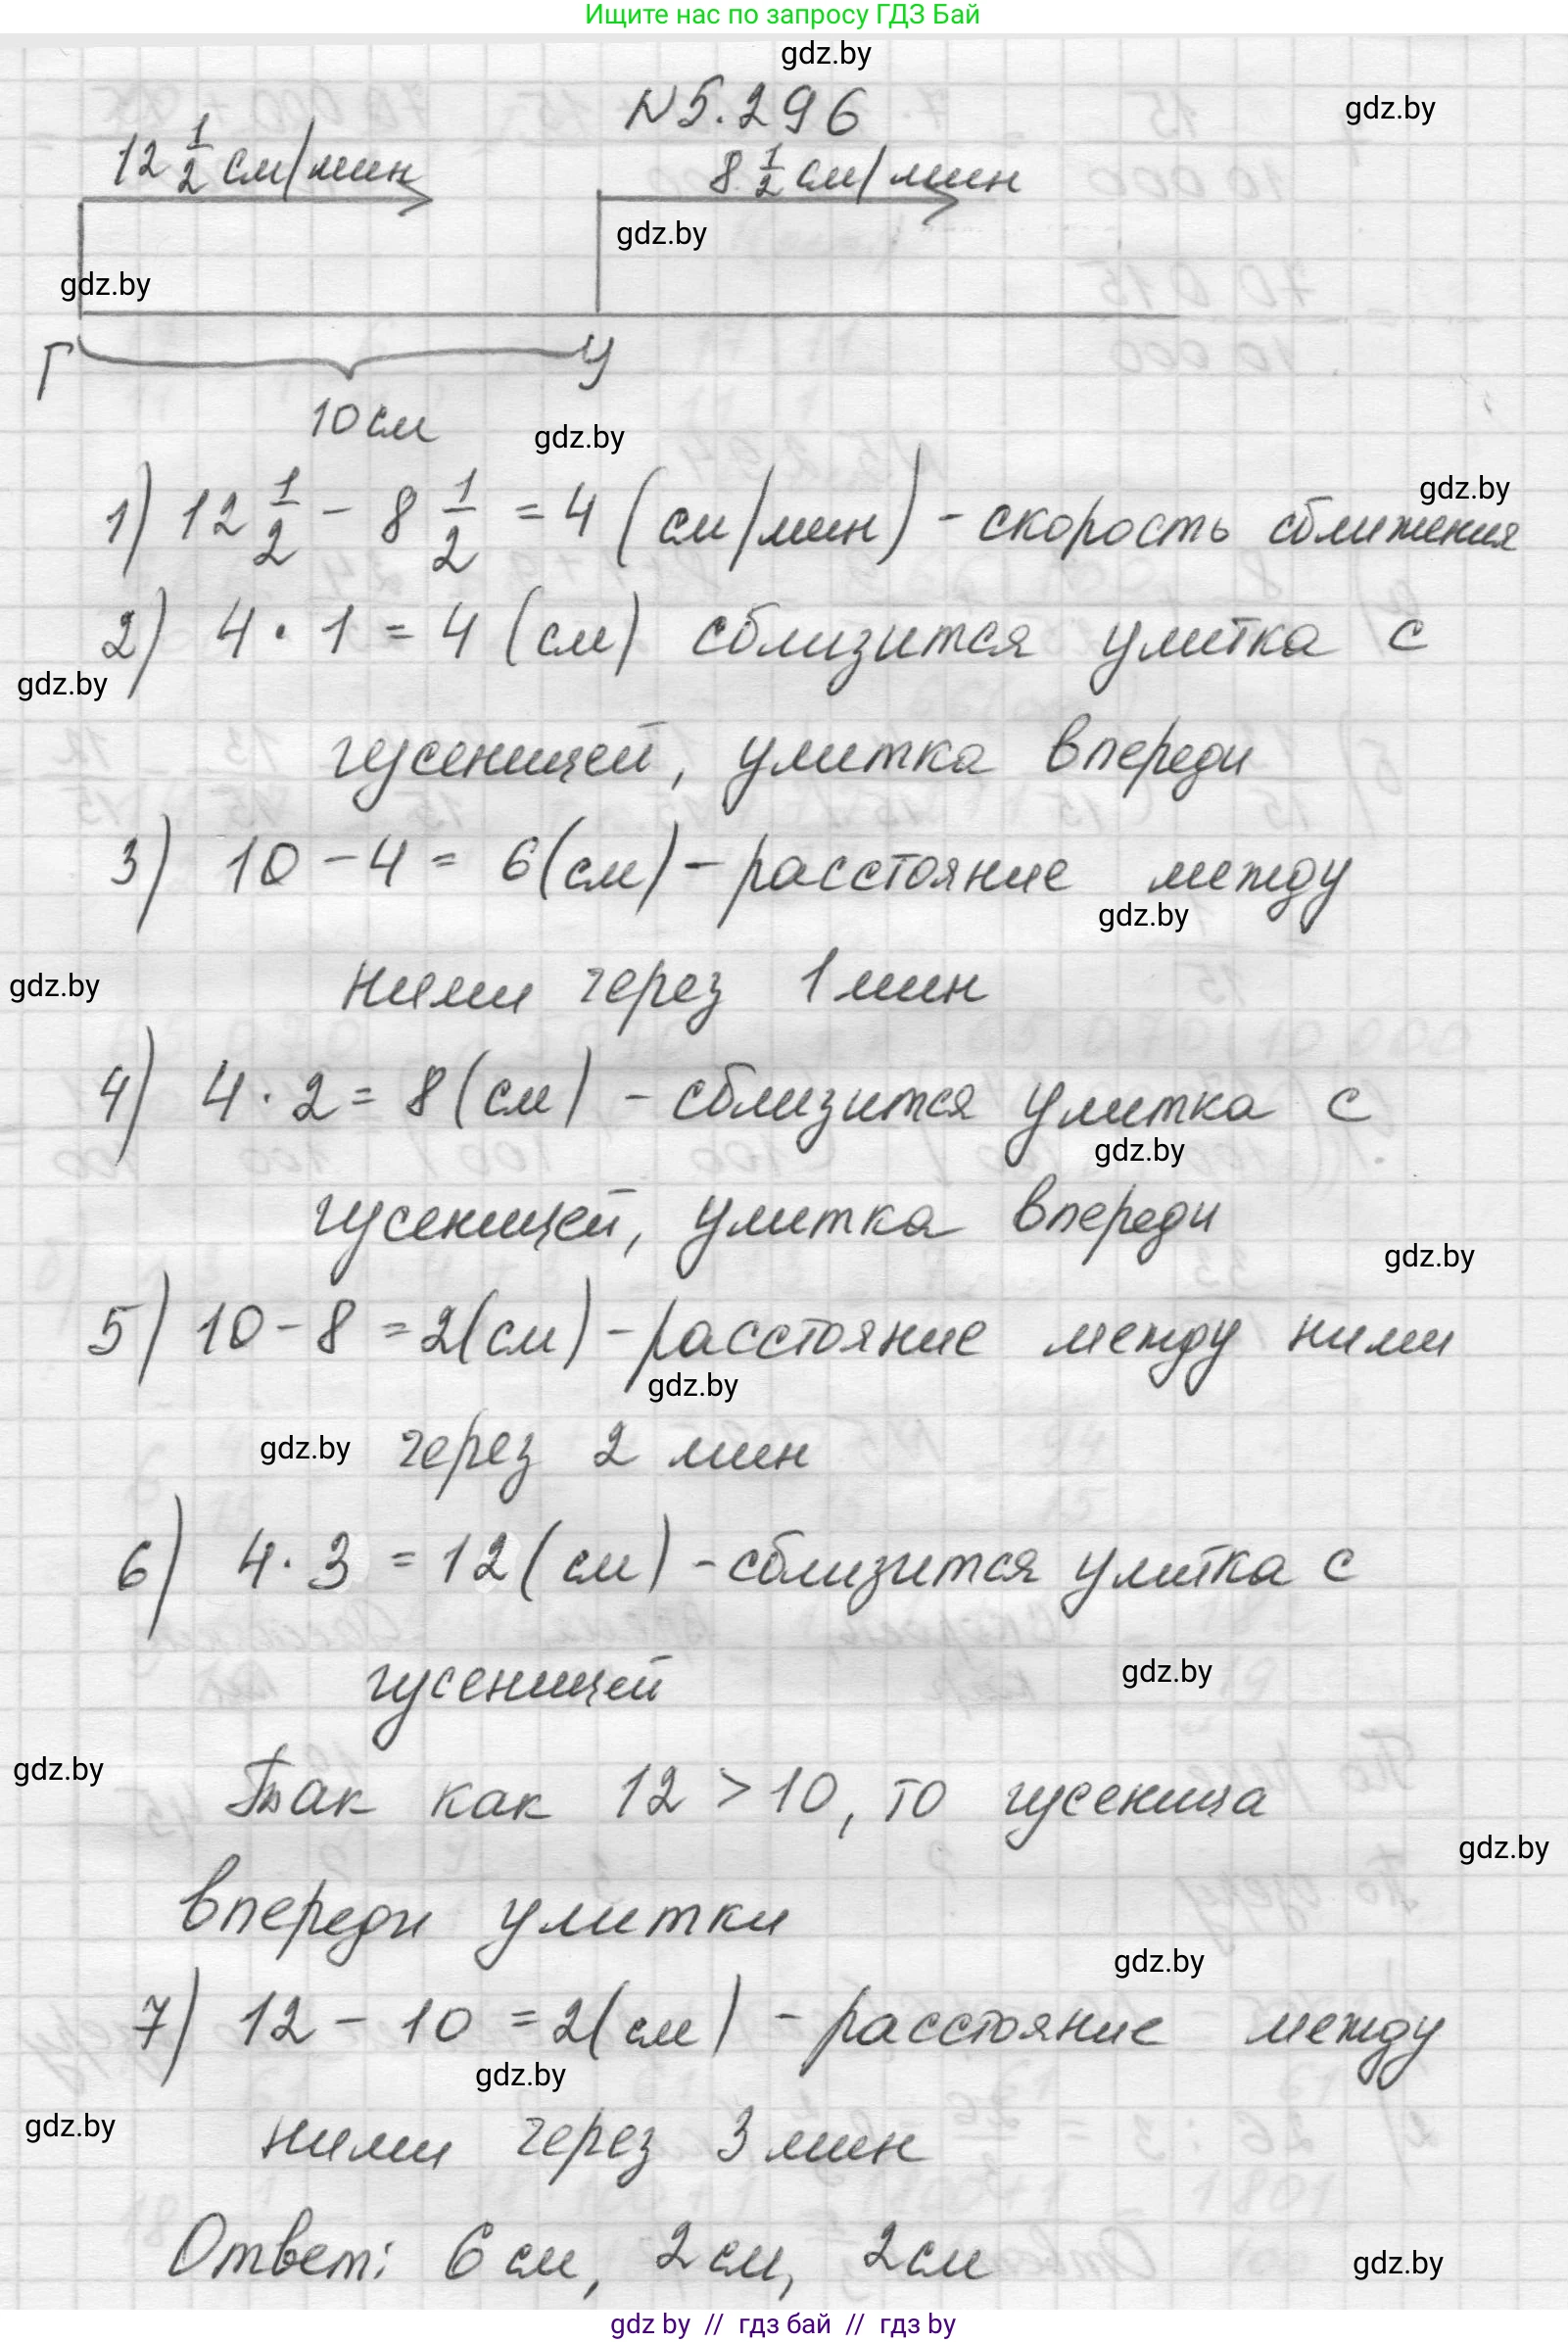 Ищите нас по запросу ГДЗ Бай
gdz.by
N5.296
gdz.by
12 1/2 см/мин
8 1/2 см/мин
gdz.by
gdz.by
Г
У
10 см
gdz.by
gdz.by
1) 12 1/2 - 8 1/2 = 4 (см/мин) - скорость сближения
2) 4 · 1 = 4 (см) сблизится улитка с
gdz.by
гусеницей, улитка впереди
3) 10 - 4 = 6 (см) - расстояние между
gdz.by
ними через 1 мин
gdz.by
4) 4 · 2 = 8 (см) - сблизится улитка с
gdz.by
гусеницей, улитка впереди
gdz.by
5) 10 - 8 = 2 (см) - расстояние между ними
gdz.by
gdz.by
через 2 мин
6) 4 · 3 = 12 (см) - сблизится улитка с
гусеницей
gdz.by
gdz.by
Так как 12 > 10, то гусеница
gdz.by
впереди улитки
gdz.by
7) 12 - 10 = 2 (см) - расстояние между
gdz.by
gdz.by
ними через 3 мин
Ответ: 6 см, 2 см, 2 см
gdz.by
gdz by // гдз бай // гдз by